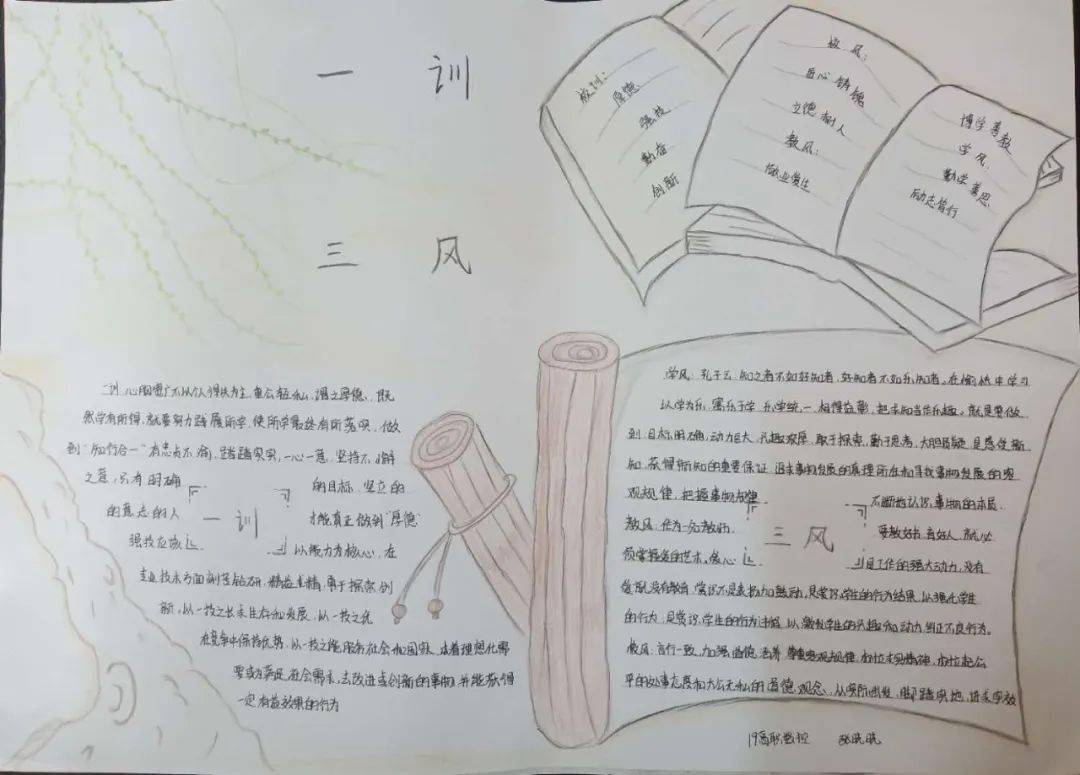 一 训
三 风
校训：
厚德
强技
勤奋
创新
校风：
匠心铸魂
立德树人
教风：
敬业爱生
博学善教
学风：
勤学善思
励志笃行
一训 心胸宽广不以个人得失为主，重公轻私，谓之厚德，既
然学有所得，就要努力践履所学，使所学最终有所落实，做
到“知行合一”有忠贞不渝，踏踏实实，一心一意，坚持不懈
之意，只有明确 的目标，坚立的
的意志的人 一 训 才能真正做到“厚德”
强技应该 以能力为核心，在
专业技术方面刻苦钻研，精益求精，勇于探索创
新，以一技之长来生存和发展，以一技之优
在竞争中保持优势，以一技之能服务社会和国家，本着理想化需
要或为满足社会需求，去改进或创新的事物，并能获得
一定有益效果的行为
学风：孔子云：知之者不如好知者，好知者不如乐知者。在愉快中学习
以学为乐，寓乐于学，乐学统一，相得益彰，把求知当作乐趣。就是要做
到目标明确，动力巨大，兴趣浓厚，敢于探索，勤于思考，大胆质疑，是感受新
知，获得新知的重要保证，追求事物发展的真理所在和寻找事物发展的客
观规律，把握事物规律 不断地认识事物的本质。
教风：作为一名教师， 三 风 要教好书，育好人，就必
须掌握爱的艺术，爱心 是工作的强大动力，没有
爱就没有教育，赏识不是表扬加鼓励，是赏识学生的行为结果，以强化学生
的行为，是赏识学生的行为过程，以激发学生的兴趣和动力，纠正不良行为。
校风：言行一致，加强道德涵养，尊重客观规律，树立求实精神，树立起公
平的处事态度和大公无私的道德观念，从实际出发，脚踏实地，讲求实效
19高职数控